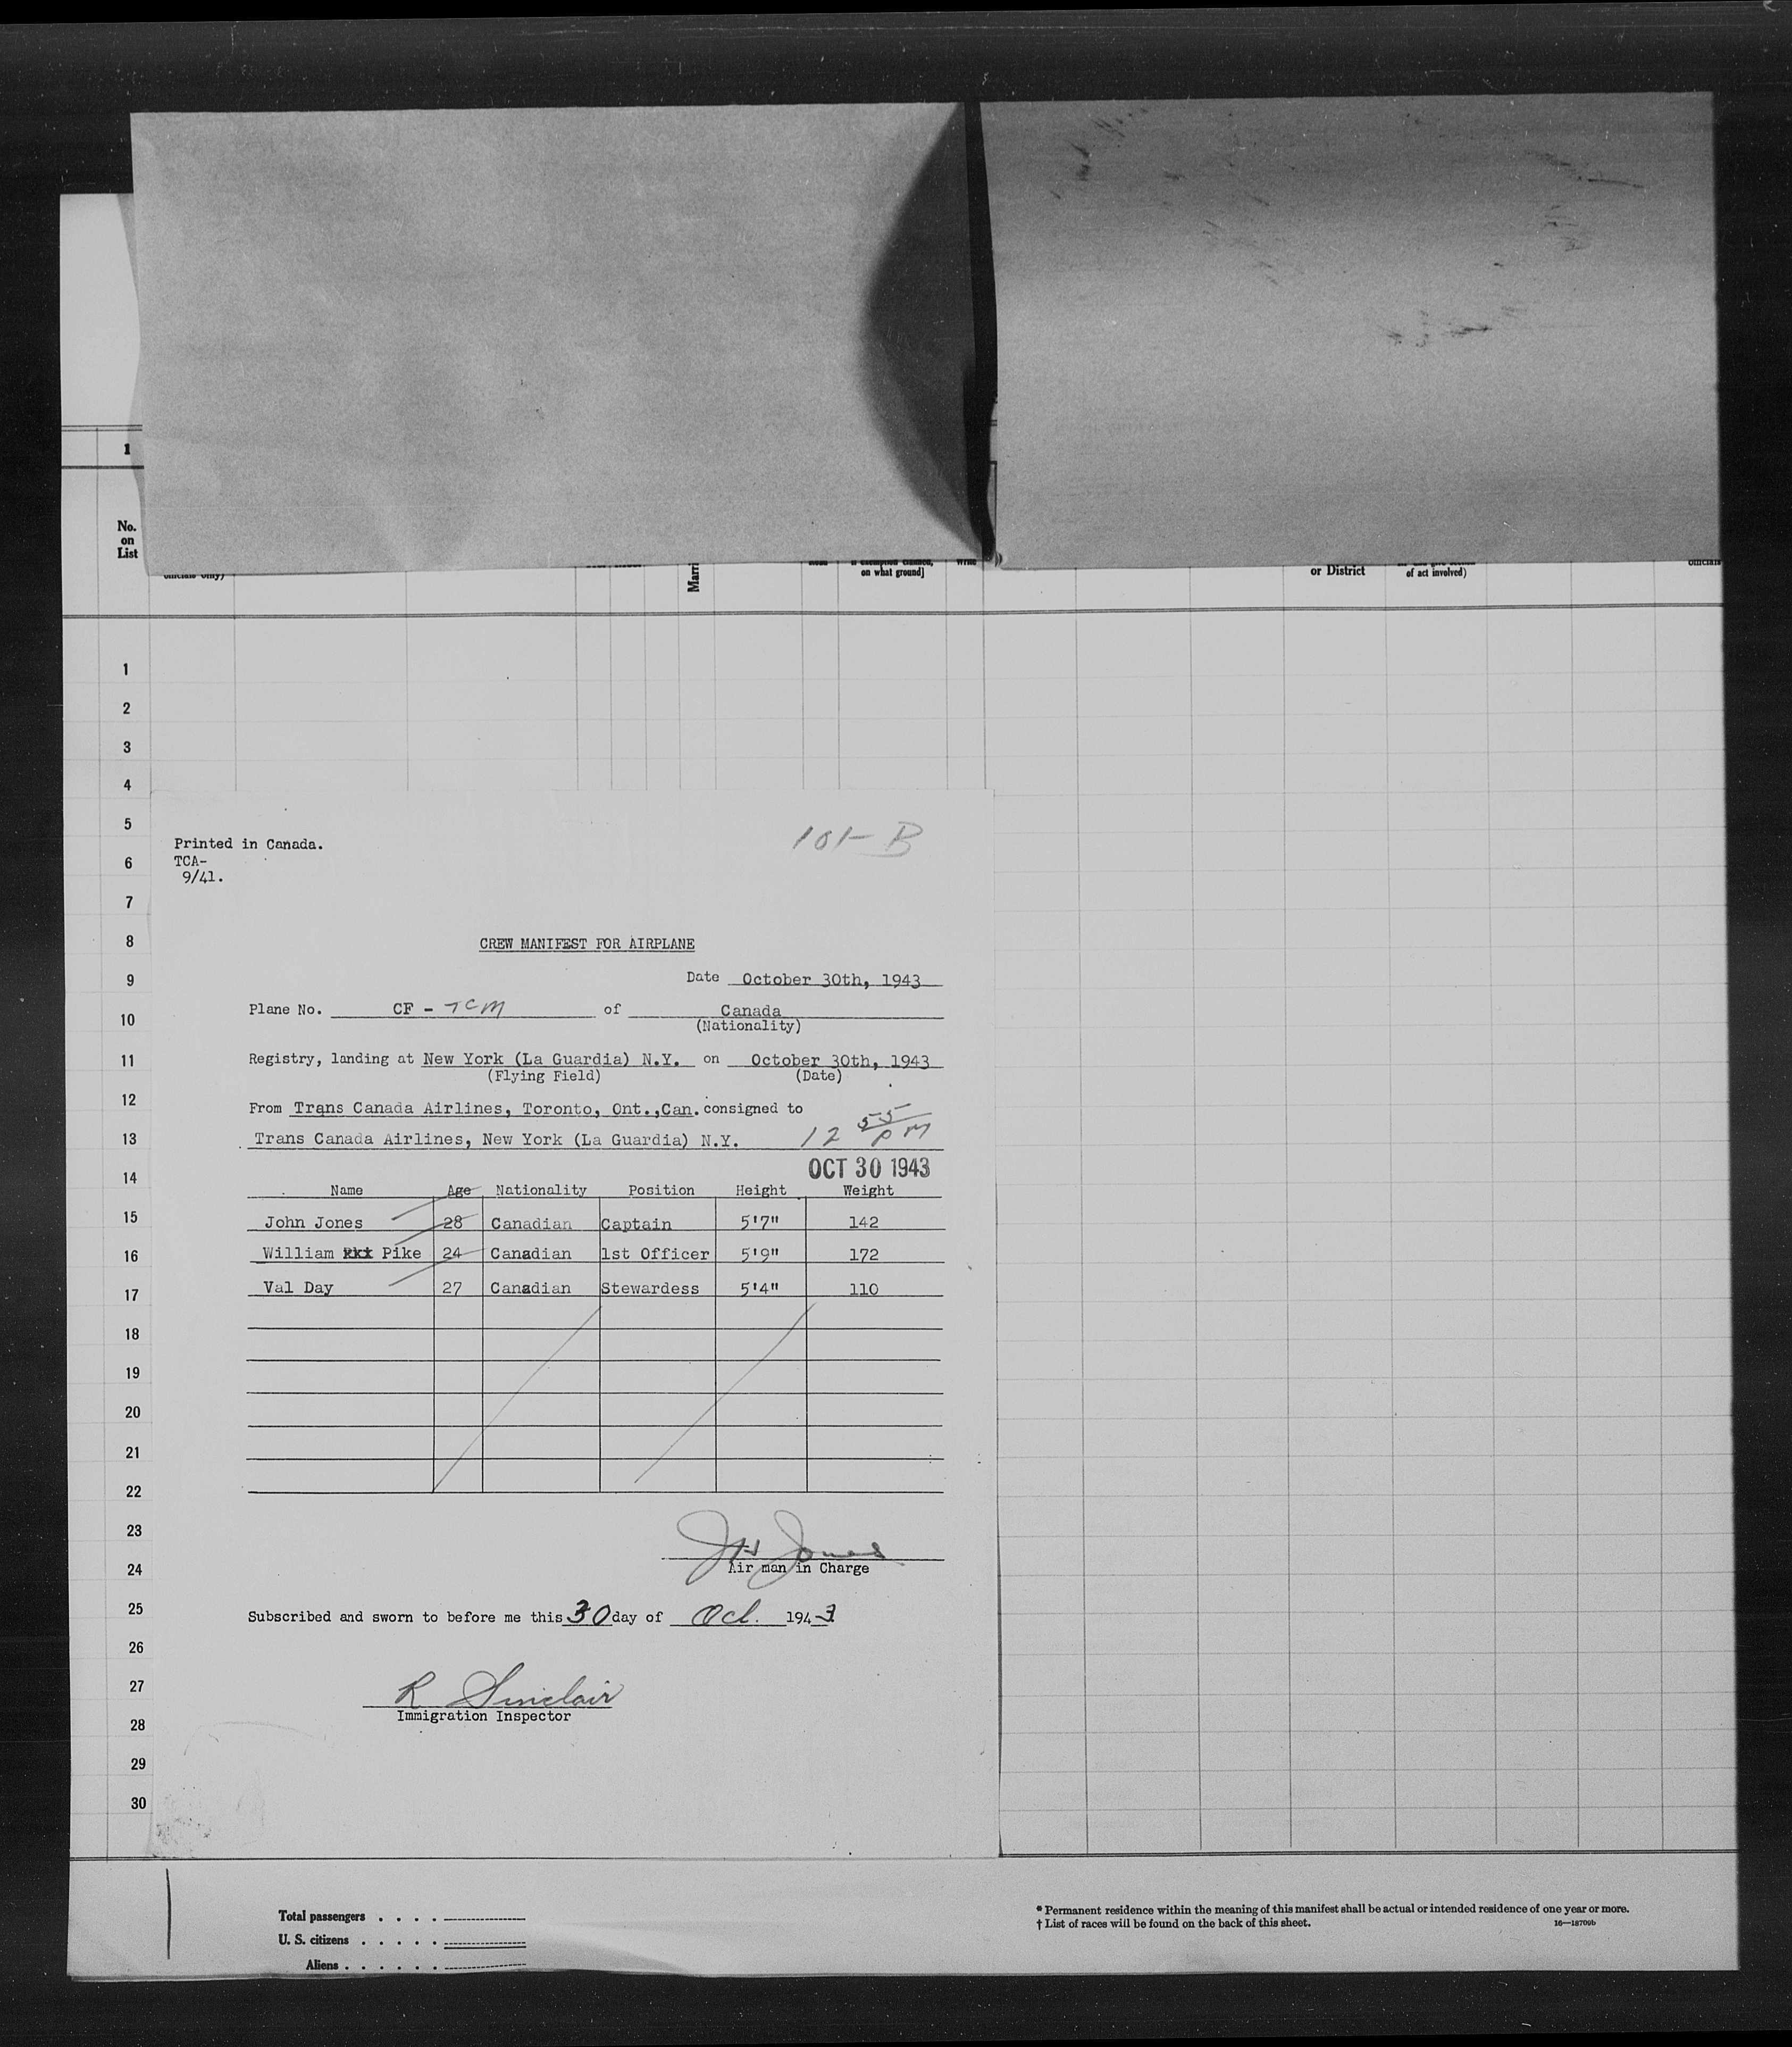 1
No.
on
List
officials only)
Marri
on what ground]
or District
of act involved)
1
2
3
4
5
6
7
8
9
10
11
12
13
14
15
16
17
18
19
20
21
22
23
24
25
26
27
28
29
30
101-B
Printed in Canada.
TCA-
9/41.
CREW MANIFEST FOR AIRPLANE
Date October 30th, 1943
Plane No. CF - TCM of Canada
(Nationality)
Registry, landing at New York (La Guardia) N.Y. on October 30th, 1943
(Flying Field) (Date)
From Trans Canada Airlines, Toronto, Ont.,Can. consigned to
Trans Canada Airlines, New York (La Guardia) N.Y. 12 55 PM
OCT 30 1943
Name Age Nationality Position Height Weight
John Jones 28 Canadian Captain 5'7" 142
William Pike 24 Canadian 1st Officer 5'9" 172
Val Day 27 Canadian Stewardess 5'4" 110
JH Jones
Air man in Charge
Subscribed and sworn to before me this 30 day of Oct. 1943
R Sinclair
Immigration Inspector
Total passengers . . . .
U. S. citizens . . . . .
Aliens . . . . . .
* Permanent residence within the meaning of this manifest shall be actual or intended residence of one year or more.
† List of races will be found on the back of this sheet. 16—18709b